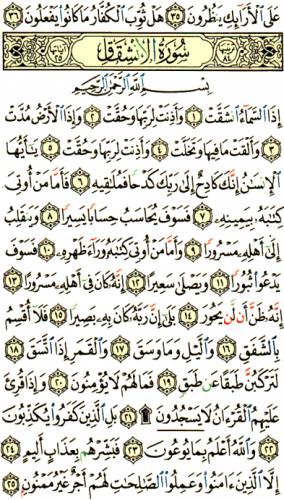 عَلَى ٱلْأَرَآئِكِ يَنظُرُونَ ٣٥ هَلْ ثُوِّبَ ٱلْكُفَّارُ مَا كَانُوا۟ يَفْعَلُونَ ٣٦
٨٤ سُورَةُ الِانْشِقَاقِ آيَاتُهَا ٢٥
بِسْمِ ٱللَّهِ ٱلرَّحْمَٰنِ ٱلرَّحِيمِ
إِذَا ٱلسَّمَآءُ ٱنشَقَّتْ ١ وَأَذِنَتْ لِرَبِّهَا وَحُقَّتْ ٢ وَإِذَا ٱلْأَرْضُ مُدَّتْ
٣ وَأَلْقَتْ مَا فِيهَا وَتَخَلَّتْ ٤ وَأَذِنَتْ لِرَبِّهَا وَحُقَّتْ ٥ يَٰٓأَيُّهَا
ٱلْإِنسَٰنُ إِنَّكَ كَادِحٌ إِلَىٰ رَبِّكَ كَدْحًا فَمُلَٰقِيهِ ٦ فَأَمَّا مَنْ أُوتِىَ
كِتَٰبَهُۥ بِيَمِينِهِۦ ٧ فَسَوْفَ يُحَاسَبُ حِسَابًا يَسِيرًا ٨ وَيَنقَلِبُ
إِلَىٰٓ أَهْلِهِۦ مَسْرُورًا ٩ وَأَمَّا مَنْ أُوتِىَ كِتَٰبَهُۥ وَرَآءَ ظَهْرِهِۦ ١٠ فَسَوْفَ
يَدْعُوا۟ ثُبُورًا ١١ وَيَصْلَىٰ سَعِيرًا ١٢ إِنَّهُۥ كَانَ فِىٓ أَهْلِهِۦ مَسْرُورًا ١٣
إِنَّهُۥ ظَنَّ أَن لَّن يَحُورَ ١٤ بَلَىٰٓ إِنَّ رَبَّهُۥ كَانَ بِهِۦ بَصِيرًا ١٥ فَلَآ أُقْسِمُ
بِٱلشَّفَقِ ١٦ وَٱلَّيْلِ وَمَا وَسَقَ ١٧ وَٱلْقَمَرِ إِذَا ٱتَّسَقَ ١٨
لَتَرْكَبُنَّ طَبَقًا عَن طَبَقٍ ١٩ فَمَا لَهُمْ لَا يُؤْمِنُونَ ٢٠ وَإِذَا قُرِئَ
عَلَيْهِمُ ٱلْقُرْءَانُ لَا يَسْجُدُونَ ۩ ٢١ بَلِ ٱلَّذِينَ كَفَرُوا۟ يُكَذِّبُونَ
٢٢ وَٱللَّهُ أَعْلَمُ بِمَا يُوعُونَ ٢٣ فَبَشِّرْهُم بِعَذَابٍ أَلِيمٍ ٢٤
إِلَّا ٱلَّذِينَ ءَامَنُوا۟ وَعَمِلُوا۟ ٱلصَّٰلِحَٰتِ لَهُمْ أَجْرٌ غَيْرُ مَمْنُونٍۭ ٢٥